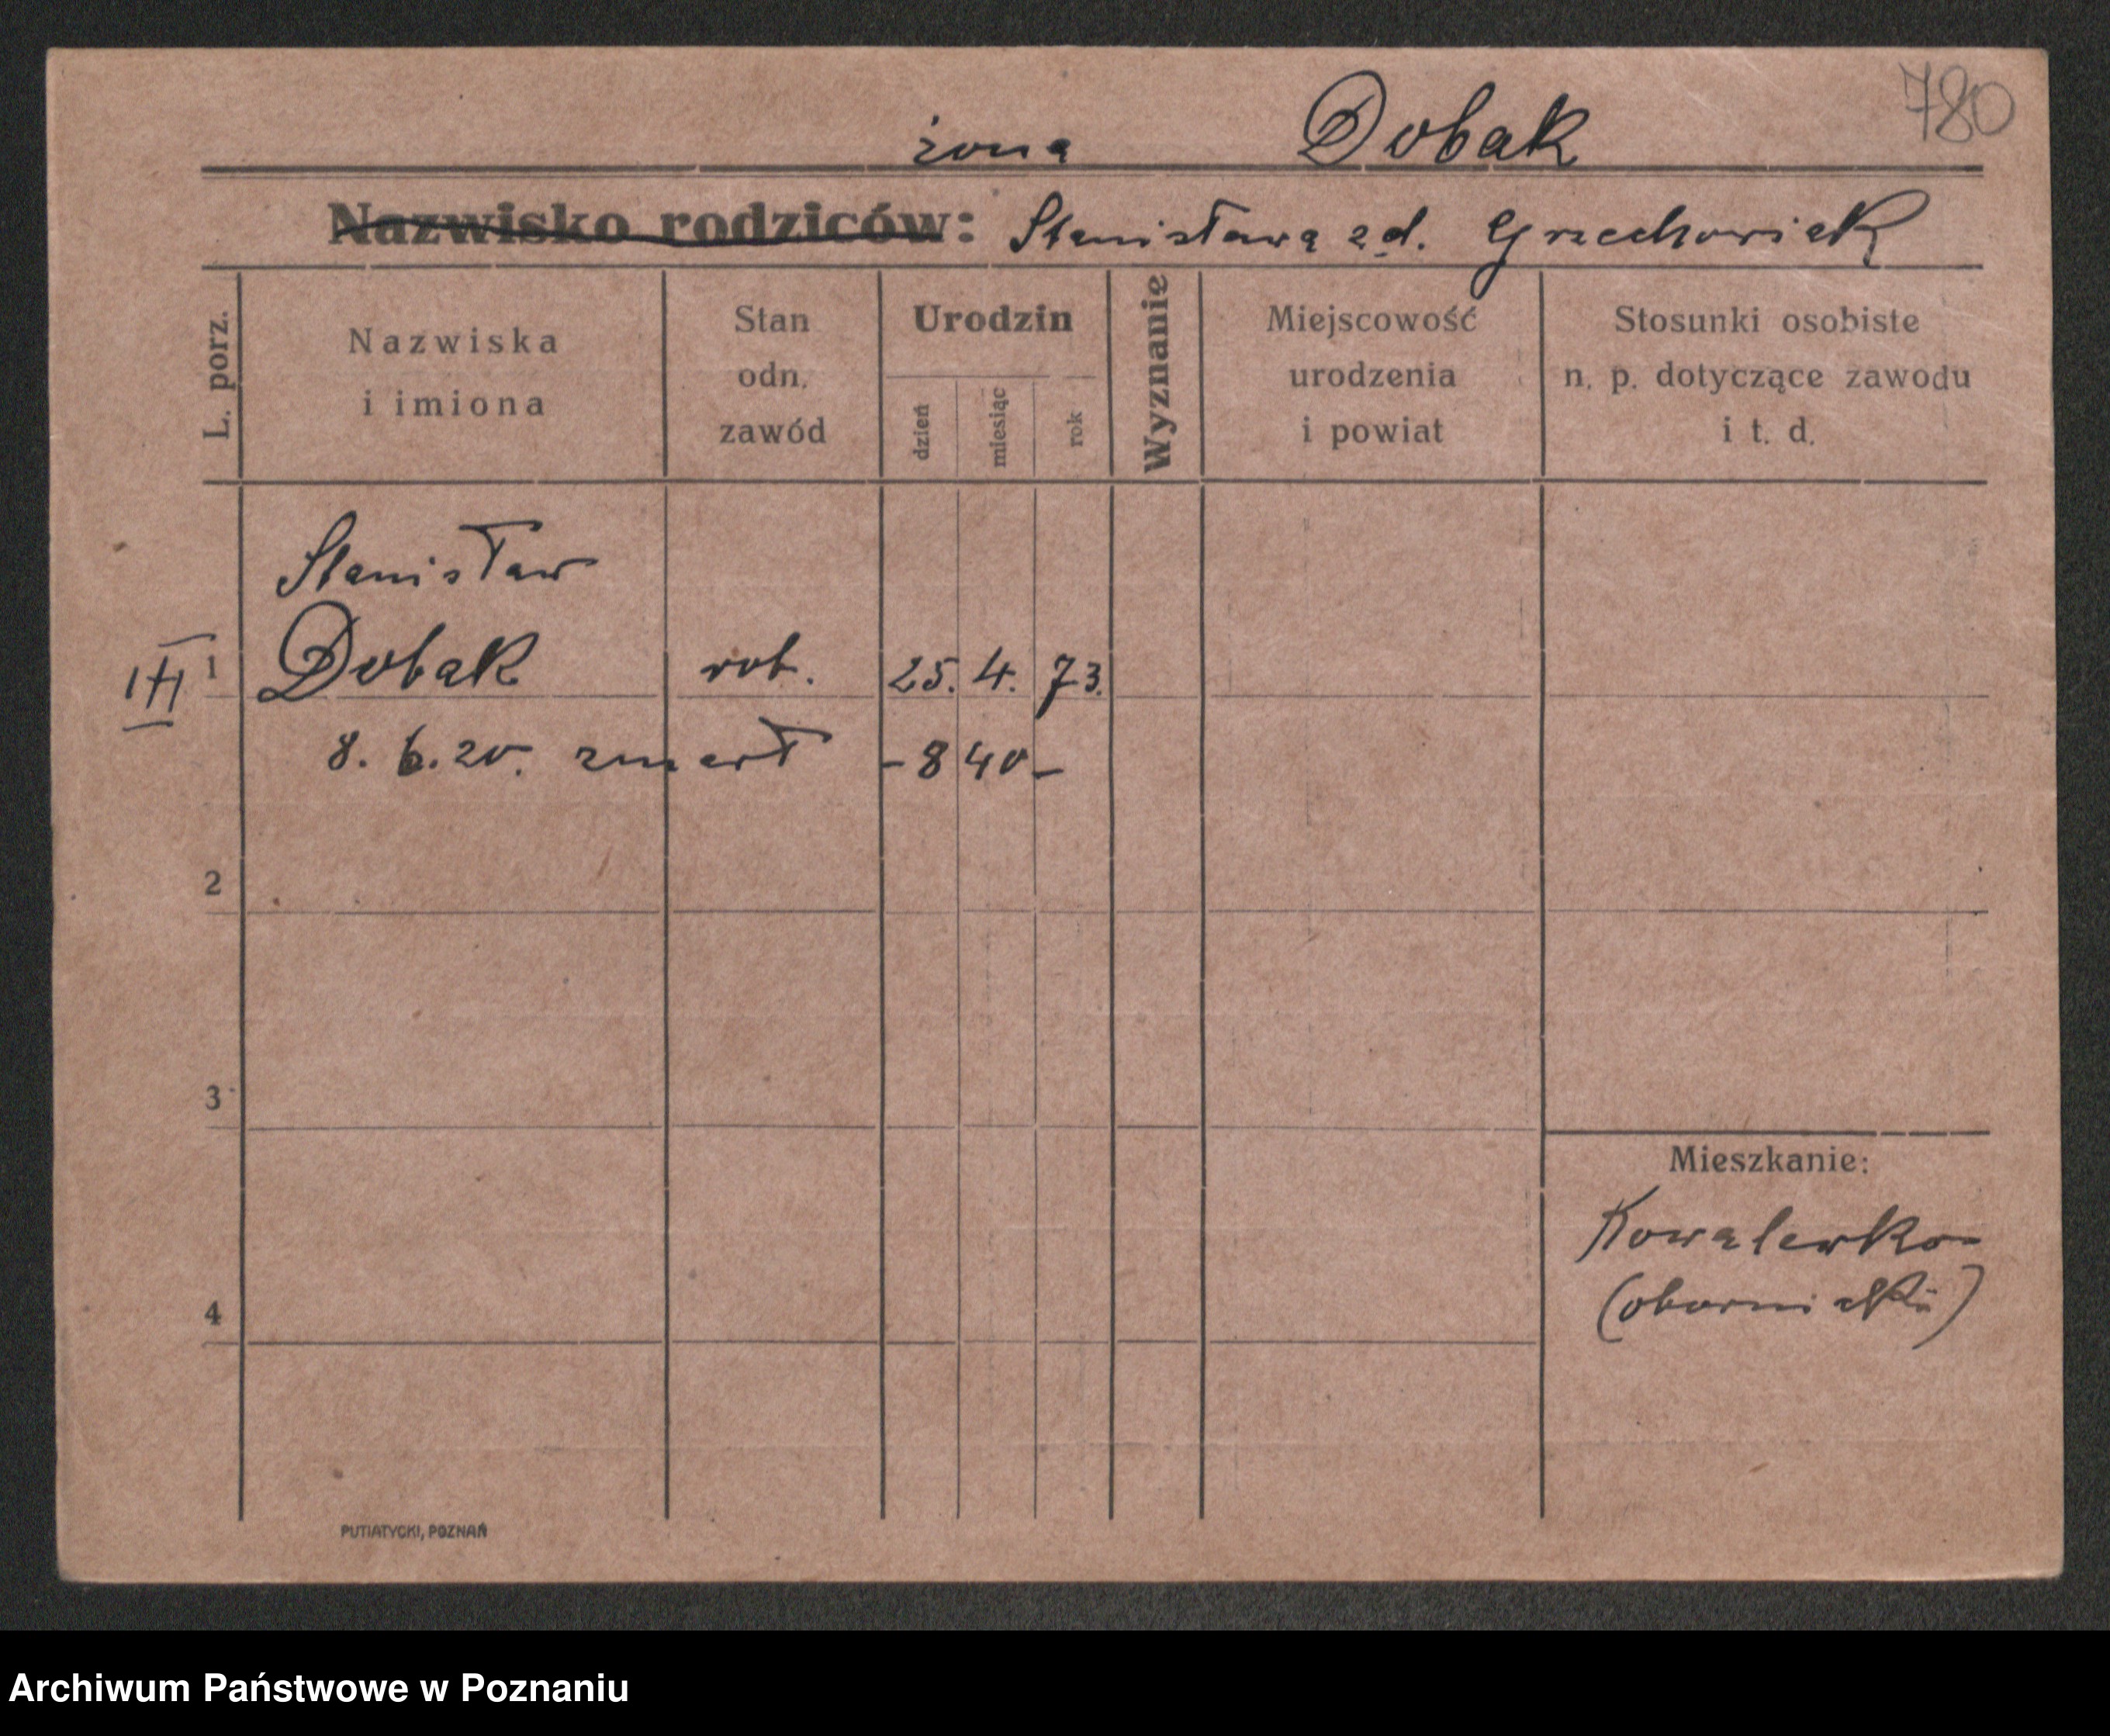 780
żona Dobak
Nazwisko rodziców: Stanisława zd. Grzechowiak
L. porz.
Nazwiska
i imiona
Stan
odn.
zawód
Urodzin
dzień
miesiąc
rok
Wyznanie
Miejscowość
urodzenia
i powiat
Stosunki osobiste
n. p. dotyczące zawodu
i t. d.
Stanisław
1 Dobak rob. 25. 4. 73.
8. 6. 20. zmarł - 8 40 -
2
3
4
Mieszkanie:
Kowalewko
(obornicki)
PUTIATYCKI, POZNAŃ
Archiwum Państwowe w Poznaniu